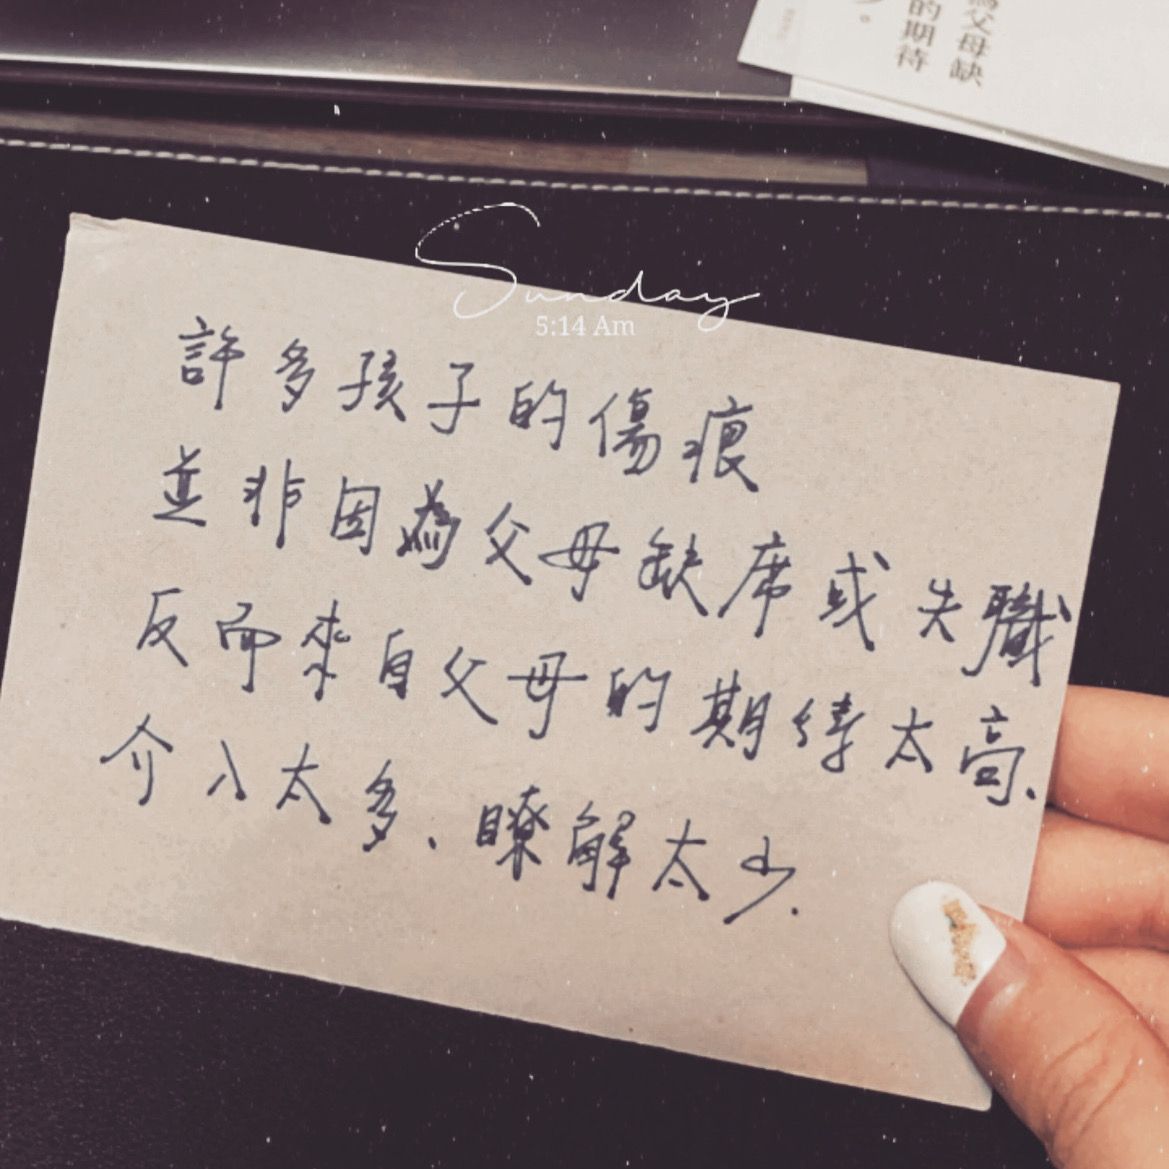 為父母缺
的期待
。
Sunday
5:14 Am
許多孩子的傷痕
並非因為父母缺席或失職
反而來自父母的期待太高、
介入太多、瞭解太少.